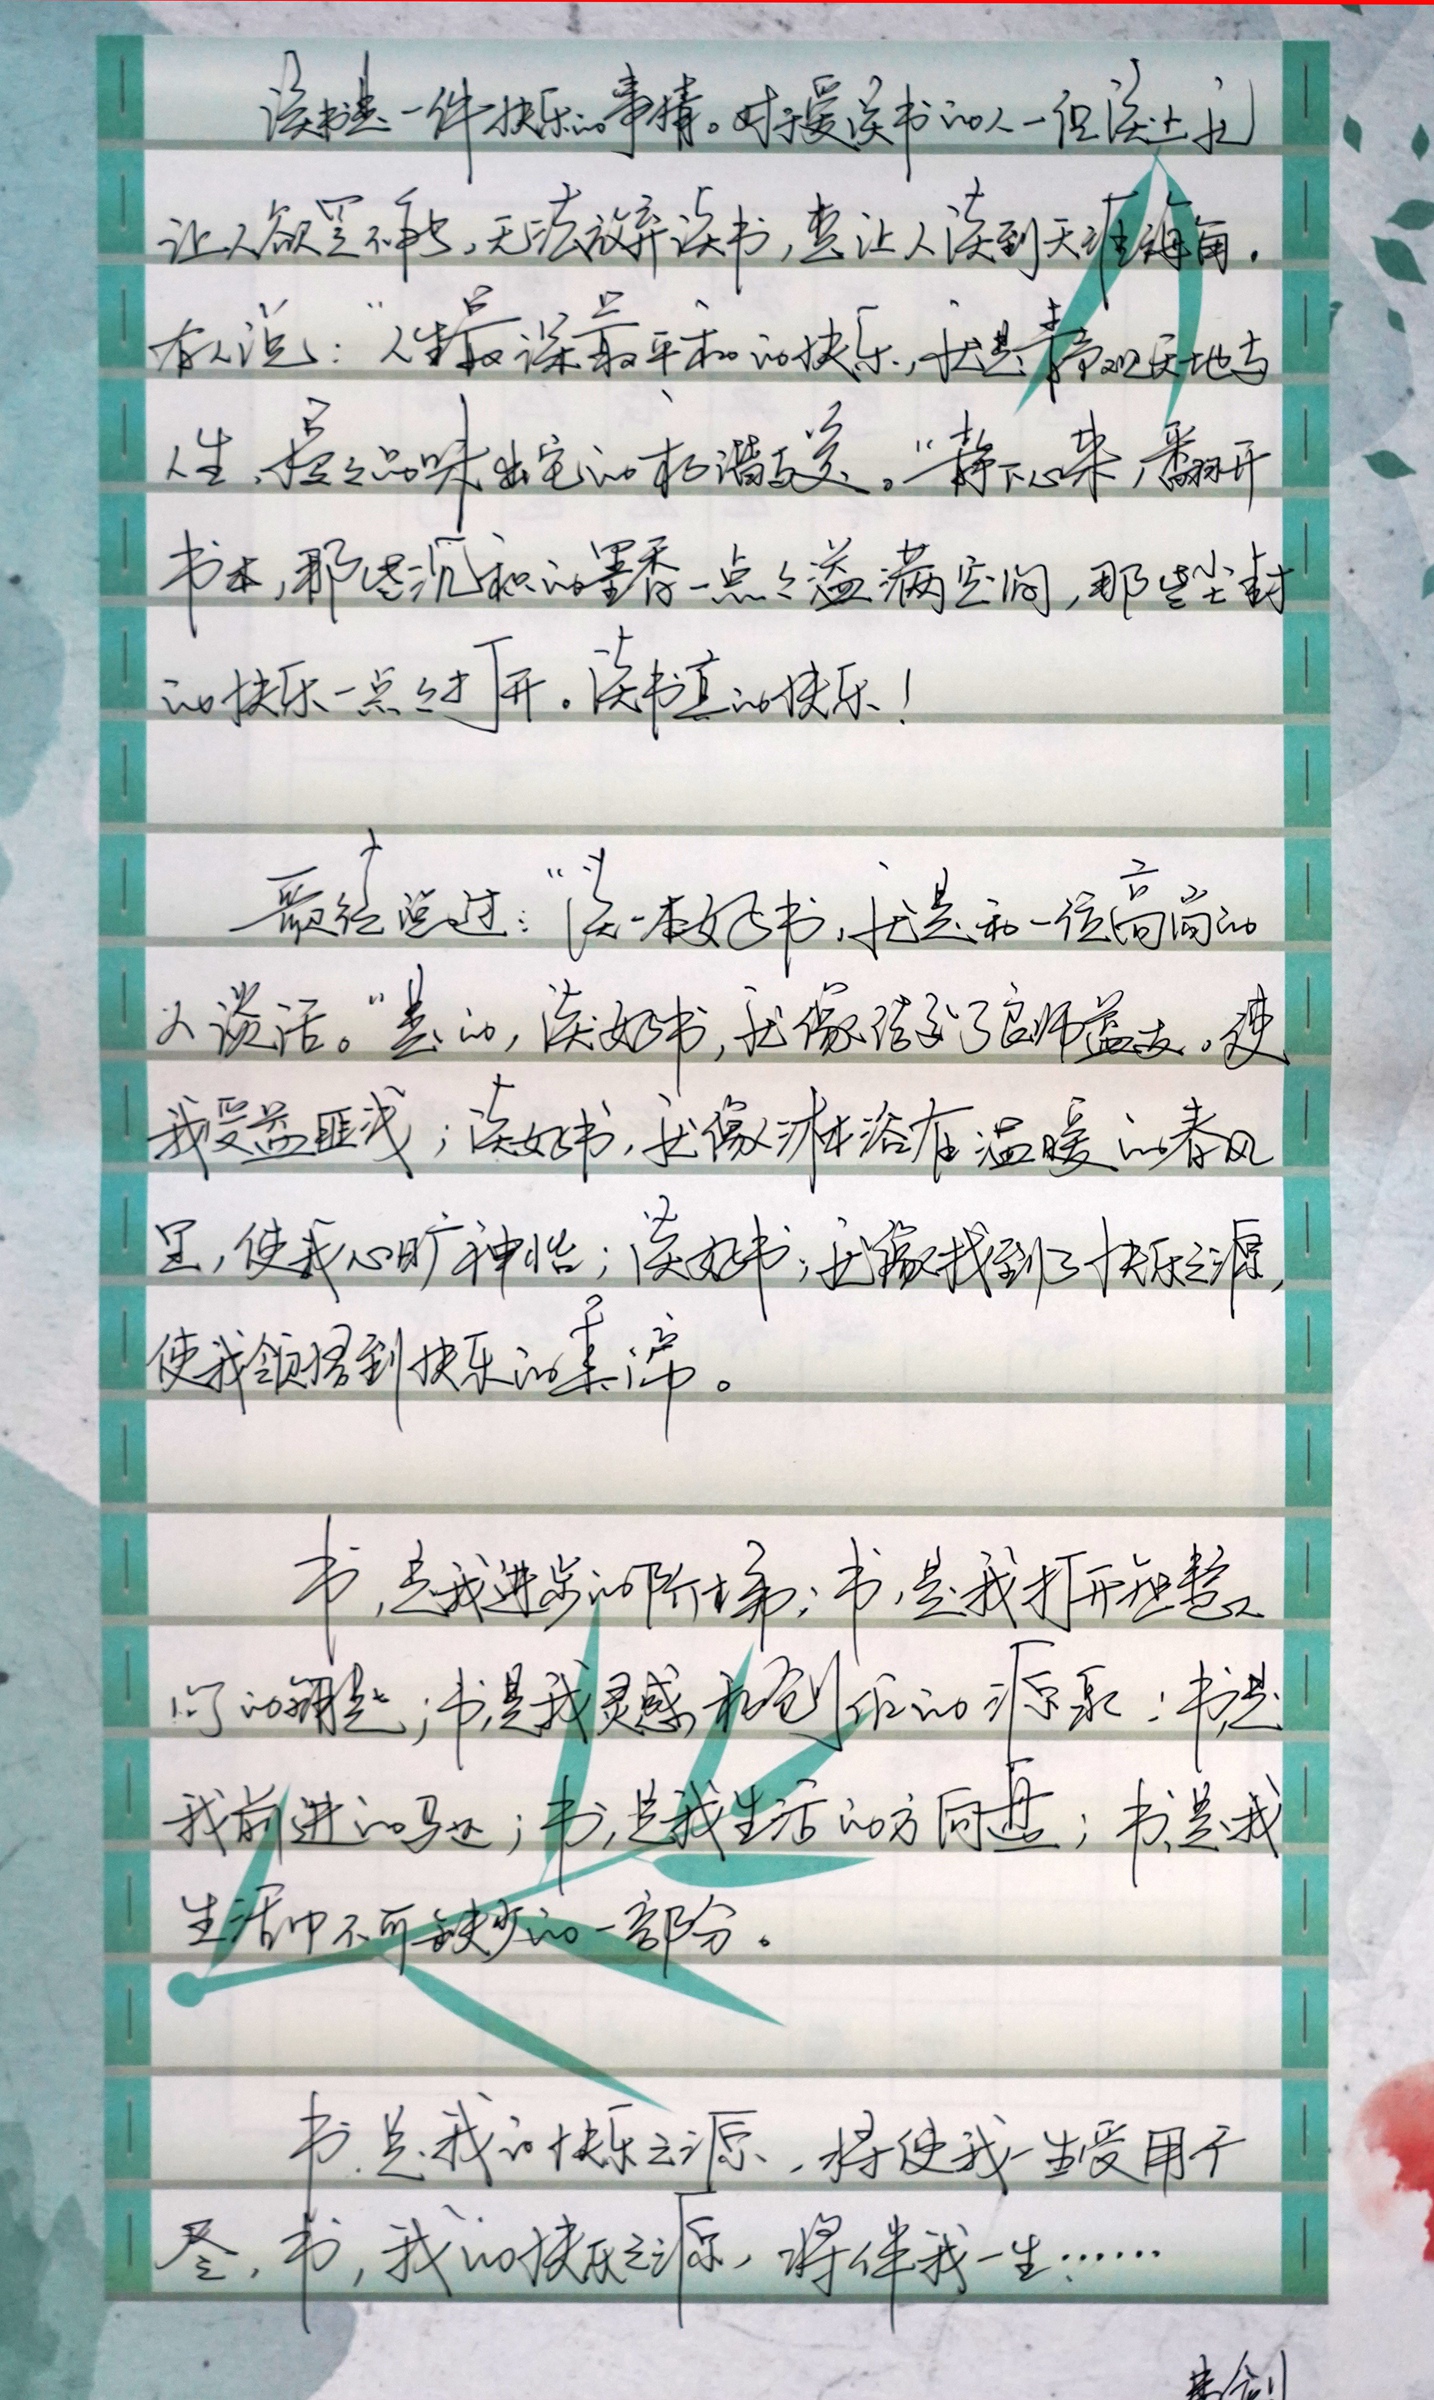 读书是一件快乐的事情。对于爱读书的人一但读上它
让人欲罢不能,无法放弃读书,去让人读到天涯海角.
有人说:“人生最深最平和的快乐,就是静观天地与
人生,慢慢品味出它的和谐与美。”静下心来,翻开
书本,那些沉积的墨香一点点溢满空间,那些尘封
的快乐一点点打开。读书真的快乐!
歌德说过:“读一本好书,就是和一位高尚的
人谈话。”是的,读好书,就像结交了良师益友。使
我受益匪浅;读好书,就像沐浴在温暖的春风
里,使我心旷神怡;读好书;就像找到了快乐之源,
使我领悟到快乐的真谛。
书,是我进步的阶梯;书,是我打开智慧之
门的钥匙;书,是我灵感和创作的源泉;书,是
我前进的马达;书,是我生活的方向盘;书,是我
生活中不可缺少的一部分。
书,是我的快乐之源,将使我一生受用不
尽,书,我的快乐之源,将伴我一生……